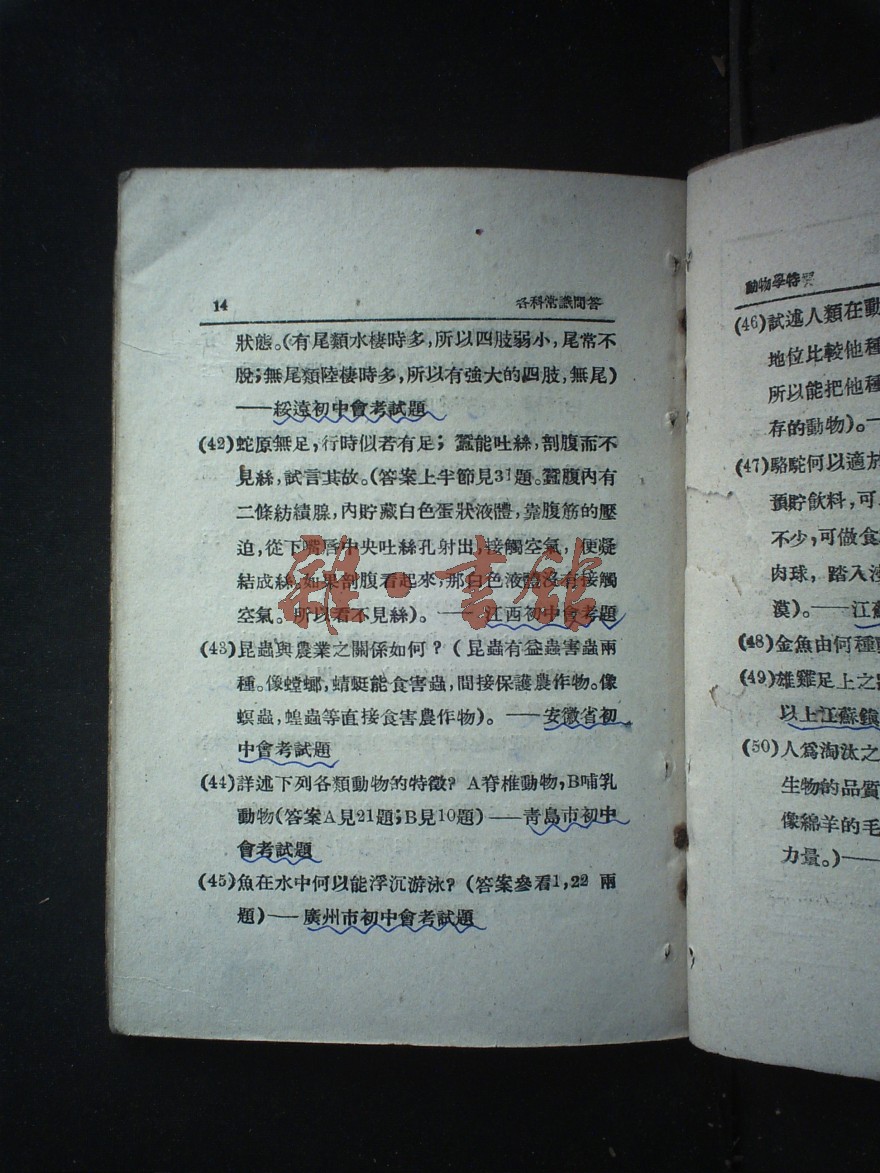 14 各科常識問答
狀態。(有尾類水棲時多,所以四肢弱小,尾常不
脫;無尾類陸棲時多,所以有強大的四肢,無尾)
——綏遠初中會考試題
(42)蛇原無足,行時似若有足;蠶能吐絲,剖腹而不
見絲,試言其故。(答案上半節見31題。蠶腹內有
二條紡績腺,內貯藏白色蛋狀液體,靠腹筋的壓
迫,從下嘴唇中央吐絲孔射出,接觸空氣,便凝
結成絲。如果剖腹看起來,那白色液體沒有接觸
空氣。所以看不見絲)。——江西初中會考題
(43)昆蟲與農業之關係如何?(昆蟲有益蟲害蟲兩
種。像螳螂,蜻蜓能食害蟲,間接保護農作物。像
螟蟲,蝗蟲等直接食害農作物)。——安徽省初
中會考試題
(44)詳述下列各類動物的特徵?A脊椎動物,B哺乳
動物(答案A見21題;B見10題)——青島市初中
會考試題
(45)魚在水中何以能浮沉游泳?(答案參看1,22 兩
題)——廣州市初中會考試題
雜·書館
動物學特
(46)試述人類在動
地位比較他種
所以能把他種
存的動物)。—
(47)駱駝何以適於
預貯飲料,可
不少,可做食
肉球,踏入沙
漠)。——江蘇
(48)金魚由何種
(49)雄雞足上之
以上江蘇鎮
(50)人爲淘汰之
生物的品質
像綿羊的毛
力量。)——